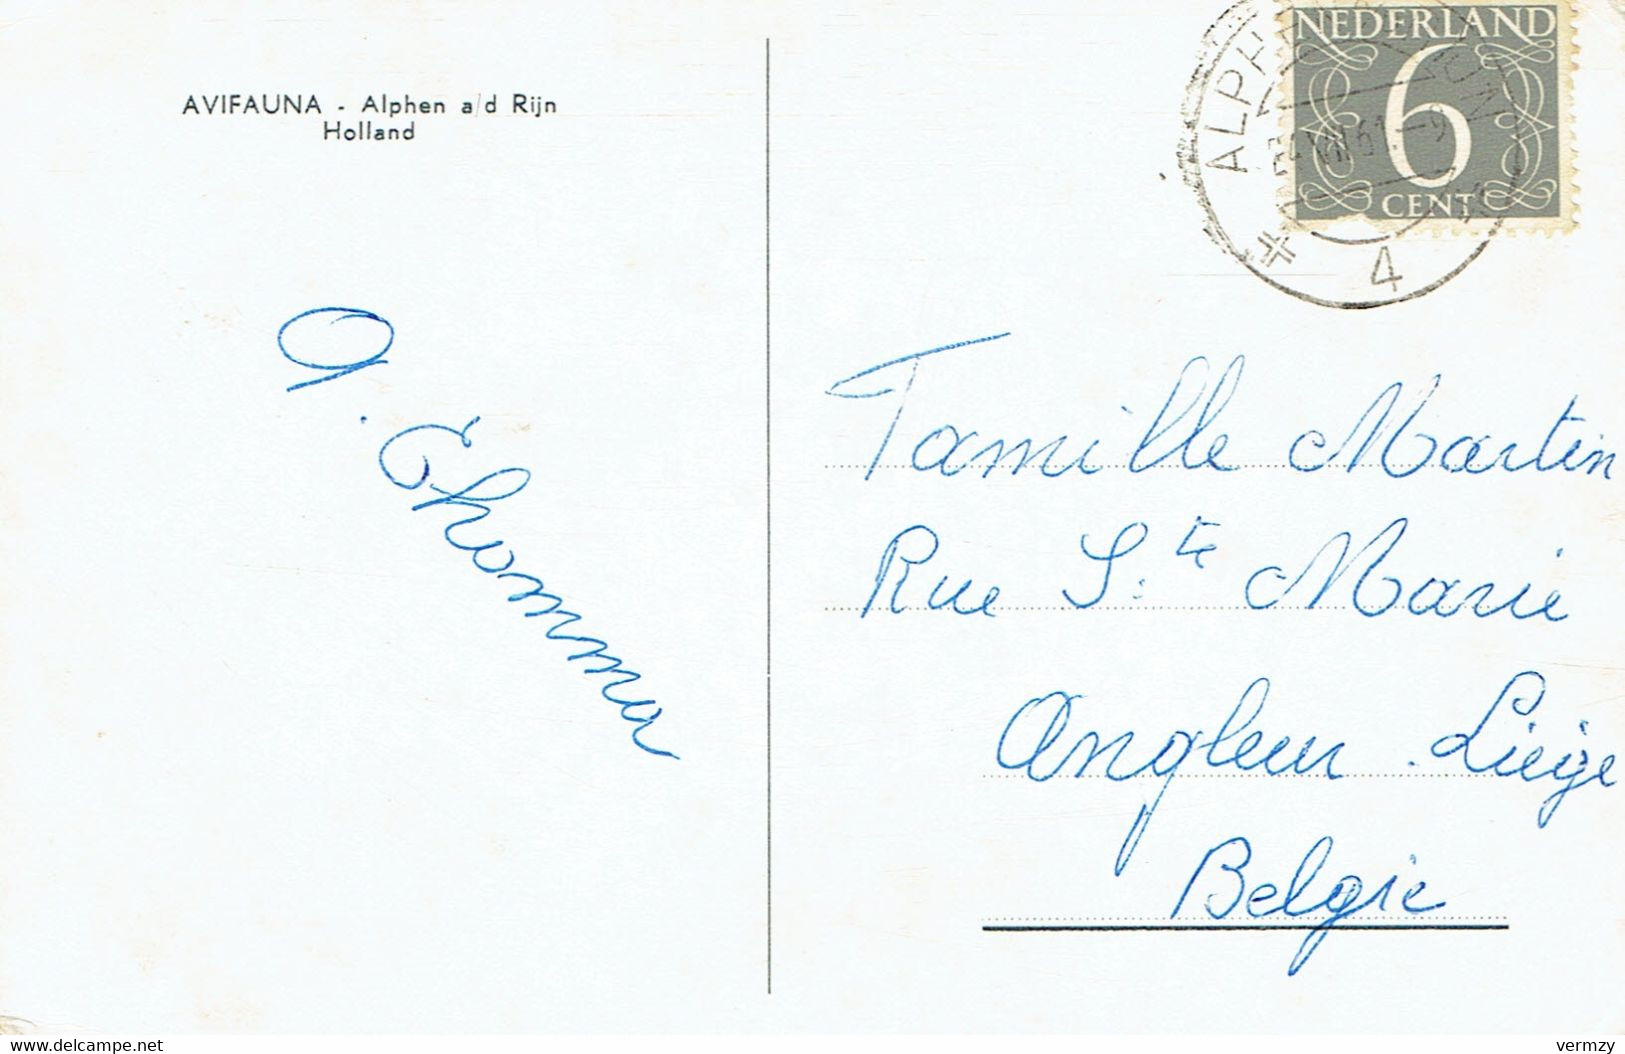 AVIFAUNA - Alphen a/d Rijn
Holland
NEDERLAND
6
CENT
4
Famille Martin
Rue Ste Marie
Angleur - Liège
Belgie
www.delcampe.net
vermzy